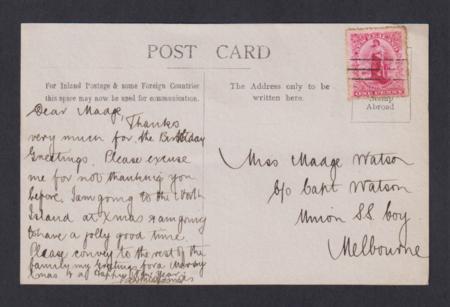 POST CARD
For Inland Postage & some Foreign Countries
this space may now be used for communication.
The Address only to be
written here.
Stamp
Abroad
Dear Madge,
Thanks
very much for the Birthday
Greetings. Please excuse
me for not thanking you
before. I am going to the North
Island at Xmas & am going
to have a jolly good time.
Please convey to the rest of the
family my Greetings for a Merry
Xmas & a Happy New Year
Miss Madge Watson
c/o Capt Watson
Union SS Coy.
Melbourne